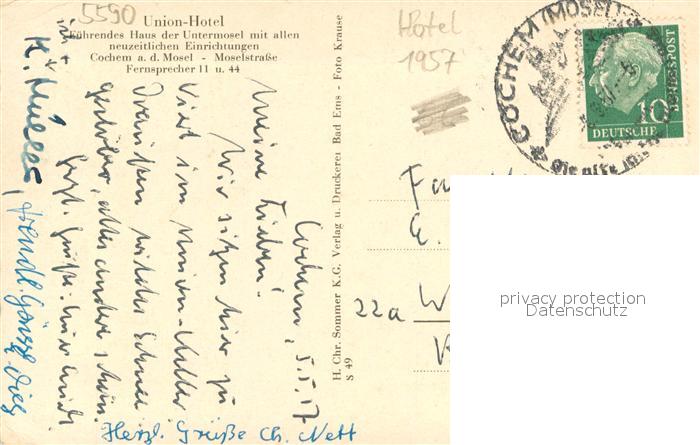 5590
Union-Hotel
Führendes Haus der Untermosel mit allen
neuzeitlichen Einrichtungen
Cochem a. d. Mosel - Moselstraße
Fernsprecher 11 u. 44
Hotel
1957
COCHEM (MOSEL)
10
DEUTSCHE
BUNDESPOST
Cochem, 5.5.57
Meine Lieben!
Wir sitzen hier zu
viert im Union-Keller
draußen wilder Schnee
alles andere schön.
Herzl. Grüße
K. Müller
Herzl. Grüße Ch. Nett
H. Chr. Sommer K.G. Verlag u. Druckerei Bad Ems - Foto Krause
S 49
Fa
E.
22a W
privacy protection
Datenschutz